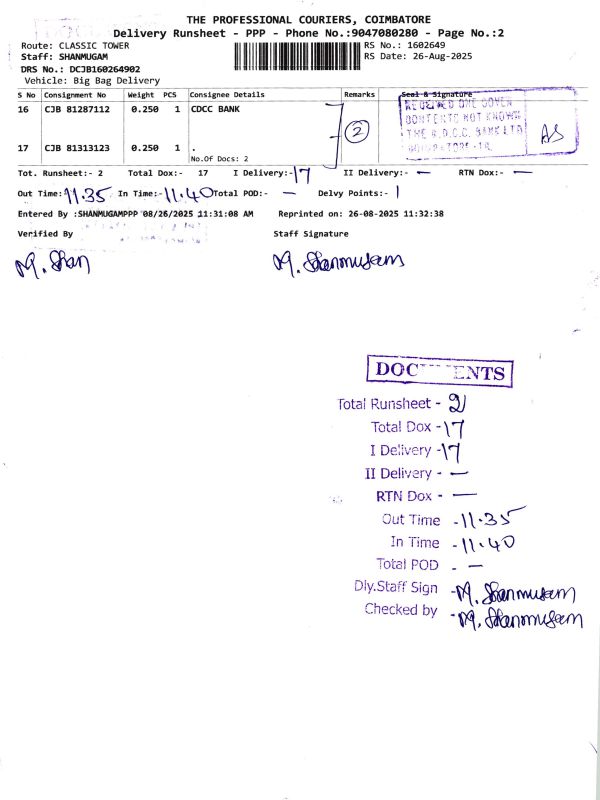 THE PROFESSIONAL COURIERS, COIMBATORE
Delivery Runsheet - PPP - Phone No.:9047080280 - Page No.:2
Route: CLASSIC TOWER
Staff: SHANMUGAM
RS No.: 1602649
RS Date: 26-Aug-2025
DRS No.: DCJB160264902
Vehicle: Big Bag Delivery
S No Consignment No Weight PCS Consignee Details Remarks Seal & Signature
16 CJB 81287112 0.250 1 CDCC BANK
2
RECEIVED ONE COVER
CONTENTS NOT KNOWN
17 CJB 81313123 0.250 1 .
No.Of Docs: 2
Tot. Runsheet:- 2 Total Dox:- 17 I Delivery:- 17 II Delivery:- — RTN Dox:- —
Out Time: 11.35 In Time:- 11.40 Total POD:- — Delvy Points:- 1
Entered By :SHANMUGAMPPP 08/26/2025 11:31:08 AM Reprinted on: 26-08-2025 11:32:38
Verified By Staff Signature
M. Shan M. Shanmugam
DOCUMENTS
Total Runsheet - 2
Total Dox - 17
I Delivery - 17
II Delivery - —
RTN Dox - —
Out Time - 11.35
In Time - 11.40
Total POD - —
Dly.Staff Sign - M. Shanmugam
Checked by - M. Shanmugam